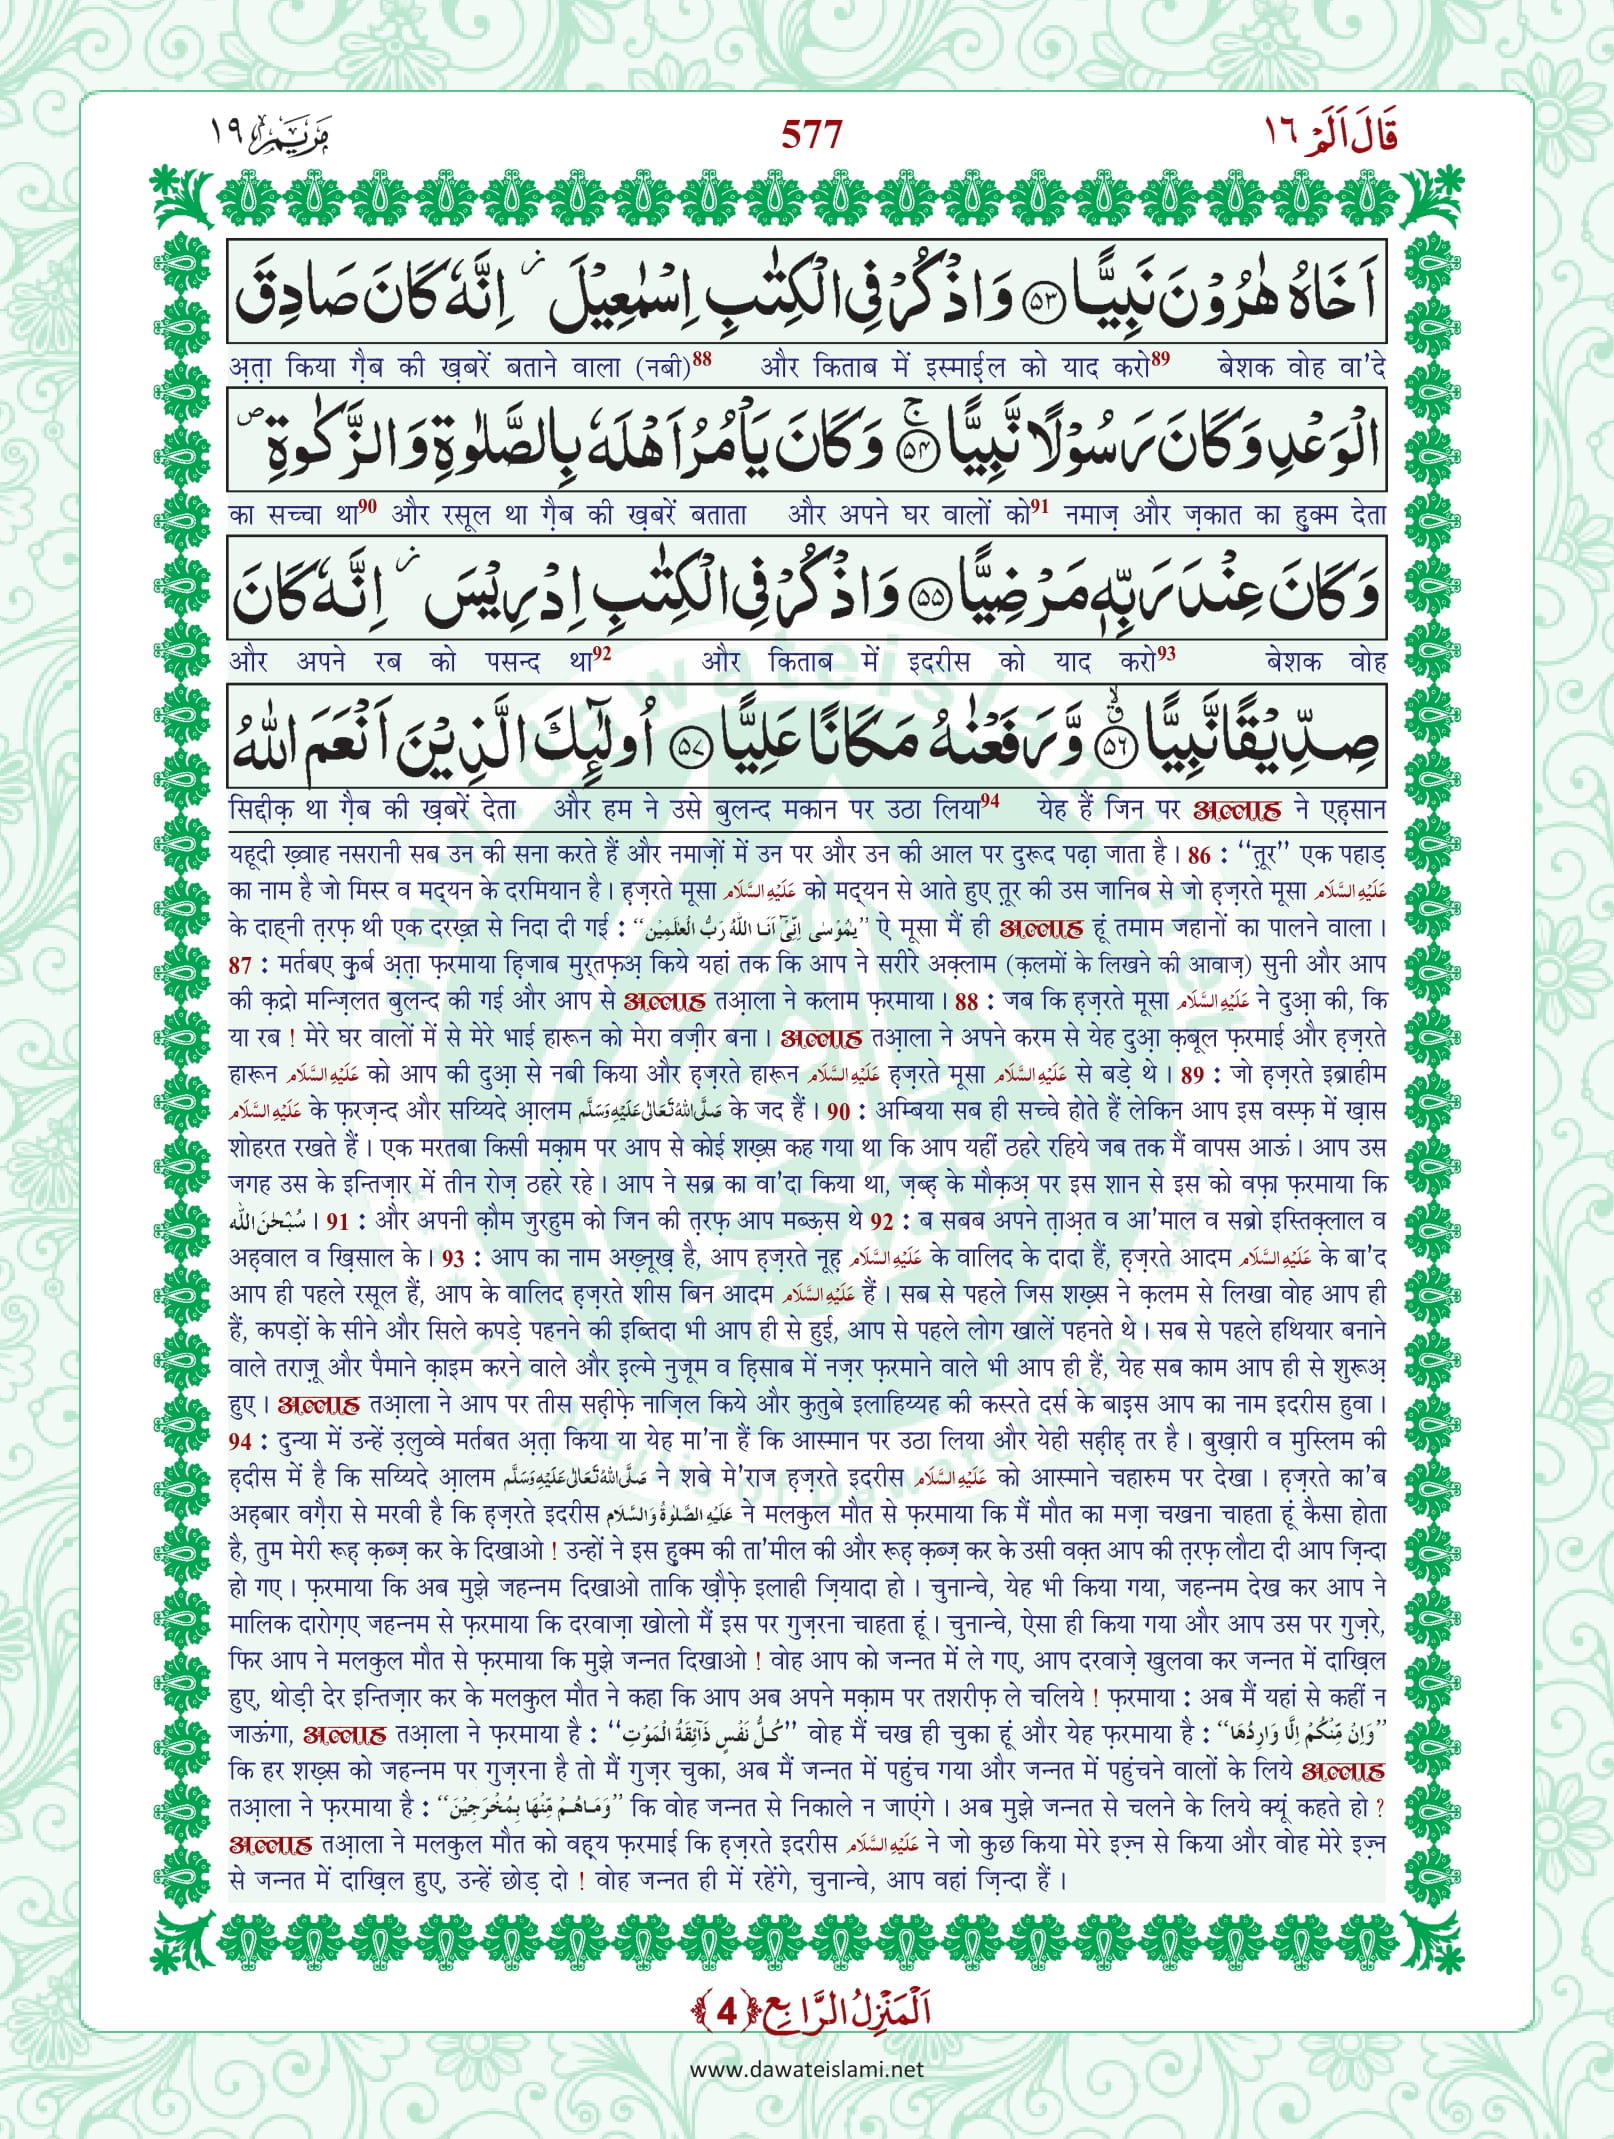 قَالَ اَلَمْ ١٦
577
مَرْيَم ١٩
اَخَاهُ هٰرُوْنَ نَبِیًّا ﴿۵۳﴾ وَ اذْكُرْ فِی الْكِتٰبِ اِسْمٰعِیْلَ ٘ اِنَّهٗ كَانَ صَادِقَ
अ़त़ा किया ग़ैब की ख़बरें बताने वाला (नबी)88 और किताब में इस्माई़ल को याद करो89 बेशक वोह वा'दे
الْوَعْدِ وَ كَانَ رَسُوْلًا نَّبِیًّا ﴿۵۴﴾ۚ وَ كَانَ یَاْمُرُ اَهْلَهٗ بِالصَّلٰوةِ وَ الزَّكٰوةِ ۪
का सच्चा था90 और रसूल था ग़ैब की ख़बरें बताता और अपने घर वालों को91 नमाज़ और ज़कात का हुक्म देता
وَ كَانَ عِنْدَ رَبِّهٖ مَرْضِیًّا ﴿۵۵﴾ وَ اذْكُرْ فِی الْكِتٰبِ اِدْرِیْسَ ٘ اِنَّهٗ كَانَ
और अपने रब को पसन्द था92 और किताब में इदरीस को याद करो93 बेशक वोह
صِدِّیْقًا نَّبِیًّا ﴿۵۶﴾ۗۙ وَّ رَفَعْنٰهُ مَكَانًا عَلِیًّا ﴿۵۷﴾ اُولٰٓىٕكَ الَّذِیْنَ اَنْعَمَ اللّٰهُ
सिद्दीक़ था ग़ैब की ख़बरें देता और हम ने उसे बुलन्द मकान पर उठा लिया94 येह हैं जिन पर अल्लाह ने एह़सान
यहूदी ख़्वाह नसरानी सब उन की सना करते हैं और नमाज़ों में उन पर और उन की आल पर दुरूद पढ़ा जाता है। 86 : ‘‘त़ूर’’ एक पहाड़
का नाम है जो मिस्र व मद्यन के दरमियान है। ह़ज़रते मूसा عَلَيْهِ السَّلَام को मद्यन से आते हुए त़ूर की उस जानिब से जो ह़ज़रते मूसा عَلَيْهِ السَّلَام
के दाह्नी त़रफ़ थी एक दरख़्त से निदा दी गई : ‘‘یٰمُوْسٰۤی اِنِّیْۤ اَنَا اللّٰهُ رَبُّ الْعٰلَمِیْنَ’’ ऐ मूसा मैं ही अल्लाह हूं तमाम जहानों का पालने वाला।
87 : मर्तबए क़ुर्ब अ़त़ा फ़रमाया ह़िजाब मुर्तफ़अ़ किये यहां तक कि आप ने सरीरे अक़्लाम (क़लमों के लिखने की आवाज़) सुनी और आप
की क़द्रो मन्ज़िलत बुलन्द की गई और आप से अल्लाह तआ़ला ने कलाम फ़रमाया। 88 : जब कि ह़ज़रते मूसा عَلَيْهِ السَّلَام ने दुआ़ की, कि
या रब ! मेरे घर वालों में से मेरे भाई हारून को मेरा वज़ीर बना। अल्लाह तआ़ला ने अपने करम से येह दुआ़ क़बूल फ़रमाई और ह़ज़रते
हारून عَلَيْهِ السَّلَام को आप की दुआ़ से नबी किया और ह़ज़रते हारून عَلَيْهِ السَّلَام ह़ज़रते मूसा عَلَيْهِ السَّلَام से बड़े थे। 89 : जो ह़ज़रते इब्राहीम
عَلَيْهِ السَّلَام के फ़रज़न्द और सय्यिदे आ़लम صَلَّى اللهُ تَعَالٰى عَلَيْهِ وَسَلَّم के जद हैं। 90 : अम्बिया सब ही सच्चे होते हैं लेकिन आप इस वस्फ़ में ख़ास
शोहरत रखते हैं। एक मरतबा किसी मक़ाम पर आप से कोई शख़्स कह गया था कि आप यहीं ठहरे रहिये जब तक मैं वापस आऊं। आप उस
जगह उस के इन्तिज़ार में तीन रोज़ ठहरे रहे। आप ने सब्र का वा'दा किया था, ज़ब्ह़ के मौक़अ़ पर इस शान से इस को वफ़ा फ़रमाया कि
سُبْحٰنَ الله । 91 : और अपनी क़ौम जुरहुम को जिन की त़रफ़ आप मब्ऊ़स थे 92 : ब सबब अपने त़ाअ़त व आ'माल व सब्रो इस्तिक़्लाल व
अह़वाल व ख़िसाल के। 93 : आप का नाम अख़्नूख़ है, आप ह़ज़रते नूह़ عَلَيْهِ السَّلَام के वालिद के दादा हैं, ह़ज़रते आदम عَلَيْهِ السَّلَام के बा'द
आप ही पहले रसूल हैं, आप के वालिद ह़ज़रते शीस बिन आदम عَلَيْهِ السَّلَام हैं। सब से पहले जिस शख़्स ने क़लम से लिखा वोह आप ही
हैं, कपड़ों के सीने और सिले कपड़े पहनने की इब्तिदा भी आप ही से हुई, आप से पहले लोग खालें पहनते थे। सब से पहले हथियार बनाने
वाले तराज़ू और पैमाने क़ाइम करने वाले और इल्मे नुजूम व ह़िसाब में नज़र फ़रमाने वाले भी आप ही हैं, येह सब काम आप ही से शुरूअ़
हुए। अल्लाह तआ़ला ने आप पर तीस सह़ीफ़े नाज़िल किये और कुतुबे इलाहिय्यह की कस्रते दर्स के बाइस आप का नाम इदरीस हुवा।
94 : दुन्या में उन्हें उ़लुव्वे मर्तबत अ़त़ा किया या येह मा'ना हैं कि आस्मान पर उठा लिया और येही सह़ीह़ तर है। बुख़ारी व मुस्लिम की
ह़दीस में है कि सय्यिदे आ़लम صَلَّى اللهُ تَعَالٰى عَلَيْهِ وَسَلَّم ने शबे मे'राज ह़ज़रते इदरीस عَلَيْهِ السَّلَام को आस्माने चहारुम पर देखा। ह़ज़रते का'ब
अह़बार वग़ैरा से मरवी है कि ह़ज़रते इदरीस عَلَيْهِ الصَّلٰوةُ وَالسَّلَام ने मलकुल मौत से फ़रमाया कि मैं मौत का मज़ा चखना चाहता हूं कैसा होता
है, तुम मेरी रूह़ क़ब्ज़ कर के दिखाओ ! उन्हों ने इस हुक्म की ता'मील की और रूह़ क़ब्ज़ कर के उसी वक़्त आप की त़रफ़ लौटा दी आप ज़िन्दा
हो गए। फ़रमाया कि अब मुझे जहन्नम दिखाओ ताकि ख़ौफ़े इलाही ज़ियादा हो। चुनान्चे, येह भी किया गया, जहन्नम देख कर आप ने
मालिक दारोग़ए जहन्नम से फ़रमाया कि दरवाज़ा खोलो मैं इस पर गुज़रना चाहता हूं। चुनान्चे, ऐसा ही किया गया और आप उस पर गुज़रे,
फिर आप ने मलकुल मौत से फ़रमाया कि मुझे जन्नत दिखाओ ! वोह आप को जन्नत में ले गए, आप दरवाज़े खुलवा कर जन्नत में दाख़िल
हुए, थोड़ी देर इन्तिज़ार कर के मलकुल मौत ने कहा कि आप अब अपने मक़ाम पर तशरीफ़ ले चलिये ! फ़रमाया : अब मैं यहां से कहीं न
जाऊंगा, अल्लाह तआ़ला ने फ़रमाया है : ‘‘كُلُّ نَفْسٍ ذَآئِقَةُ الْمَوْتِ’’ वोह मैं चख ही चुका हूं और येह फ़रमाया है : ‘‘وَاِنْ مِّنْكُمْ اِلَّا وَارِدُهَا’’
कि हर शख़्स को जहन्नम पर गुज़रना है तो मैं गुज़र चुका, अब मैं जन्नत में पहुंच गया और जन्नत में पहुंचने वालों के लिये अल्लाह
तआ़ला ने फ़रमाया है : ‘‘وَمَاهُمْ مِّنْهَا بِمُخْرَجِيْنَ’’ कि वोह जन्नत से निकाले न जाएंगे। अब मुझे जन्नत से चलने के लिये क्यूं कहते हो ?
अल्लाह तआ़ला ने मलकुल मौत को वह़्य फ़रमाई कि ह़ज़रते इदरीस عَلَيْهِ السَّلَام ने जो कुछ किया मेरे इज़्न से किया और वोह मेरे इज़्न
से जन्नत में दाख़िल हुए, उन्हें छोड़ दो ! वोह जन्नत ही में रहेंगे, चुनान्चे, आप वहां ज़िन्दा हैं।
اَلْمَنْزِلُ الرَّابِع ﴿4﴾
www.dawateislami.net